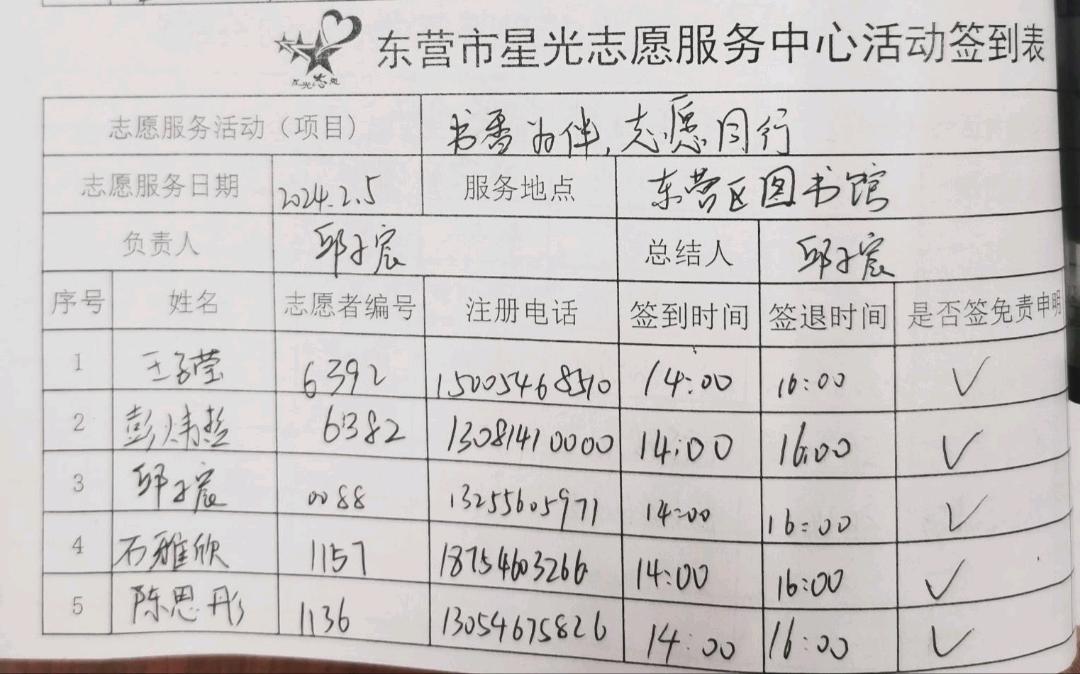 星光志愿
东营市星光志愿服务中心活动签到表
志愿服务活动（项目） 书香为伴,志愿同行
志愿服务日期 2024.2.5 服务地点 东营区图书馆
负责人 邱子宸 总结人 邱子宸
序号 姓名 志愿者编号 注册电话 签到时间 签退时间 是否签免责申明
1 王子莹 6392 15005468510 14:00 16:00 ✓
2 彭炜 6382 13081410000 14:00 16:00 ✓
3 邱子宸 0088 13255605971 14:00 16:00 ✓
4 石雅欣 1157 18754603266 14:00 16:00 ✓
5 陈思彤 1136 13054675826 14:00 16:00 ✓